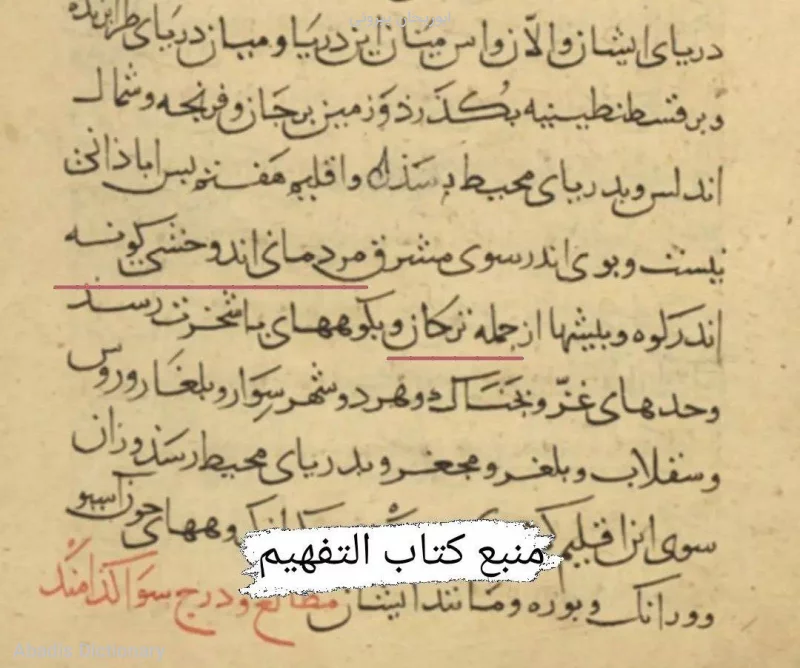 ابوریحان بیرونی
دریای ایشان والان واس میان این دریا و میان دریای طرابزنده
و بر قسطنطینیه بگذرذ و زمین برجان و فرنجه و شمال
اندلس و بدریای محیط رسذ و اقلیم هفتم بس اباذانی
نیست و بوی اندر سوی مشرق مردمانی اند وحشی گونه
اندر کوه و بیشها از جمله ترکان و بکوههای باشخرت رسذ
و حدهای غز و بجناک و هردو شهر سوار و بلغار و روس
و سقلاب و بلغر و مجغر و بدریای محیط رسذ وزان
سوی این اقلیم کوههای چون ایسو
منبع کتاب التفهیم
و ورانک و بوره و مانند ایشان مطالع و درج سوا کدامند
Abadis Dictionary